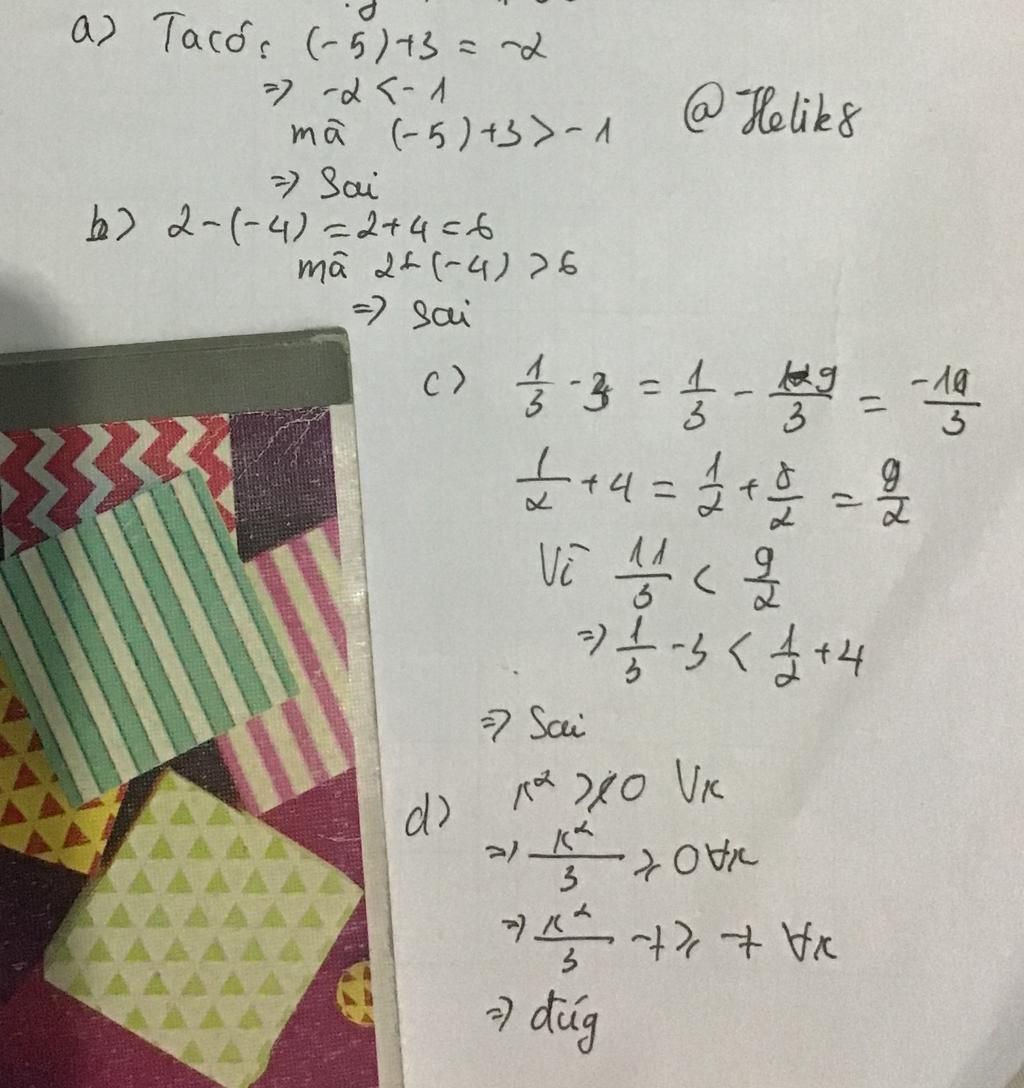 a) Ta có: (-5)+3 = -2
=> -2 < -1
@Helik8
mà (-5)+3 > -1
=> Sai
b) 2-(-4) = 2+4 = 6
mà 2+(-4) > 6
=> sai
c) 1/3 - 3 = 1/3 - 9/3 = -10/3
1/2 + 4 = 1/2 + 8/2 = 9/2
Vì 11/3 < 9/2
=> 1/3 - 3 < 1/2 + 4
=> Sai
d) x² ≥ 0 ∀x
=> x²/3 ≥ 0 ∀x
=> x²/3 - 7 ≥ -7 ∀x
=> đúg